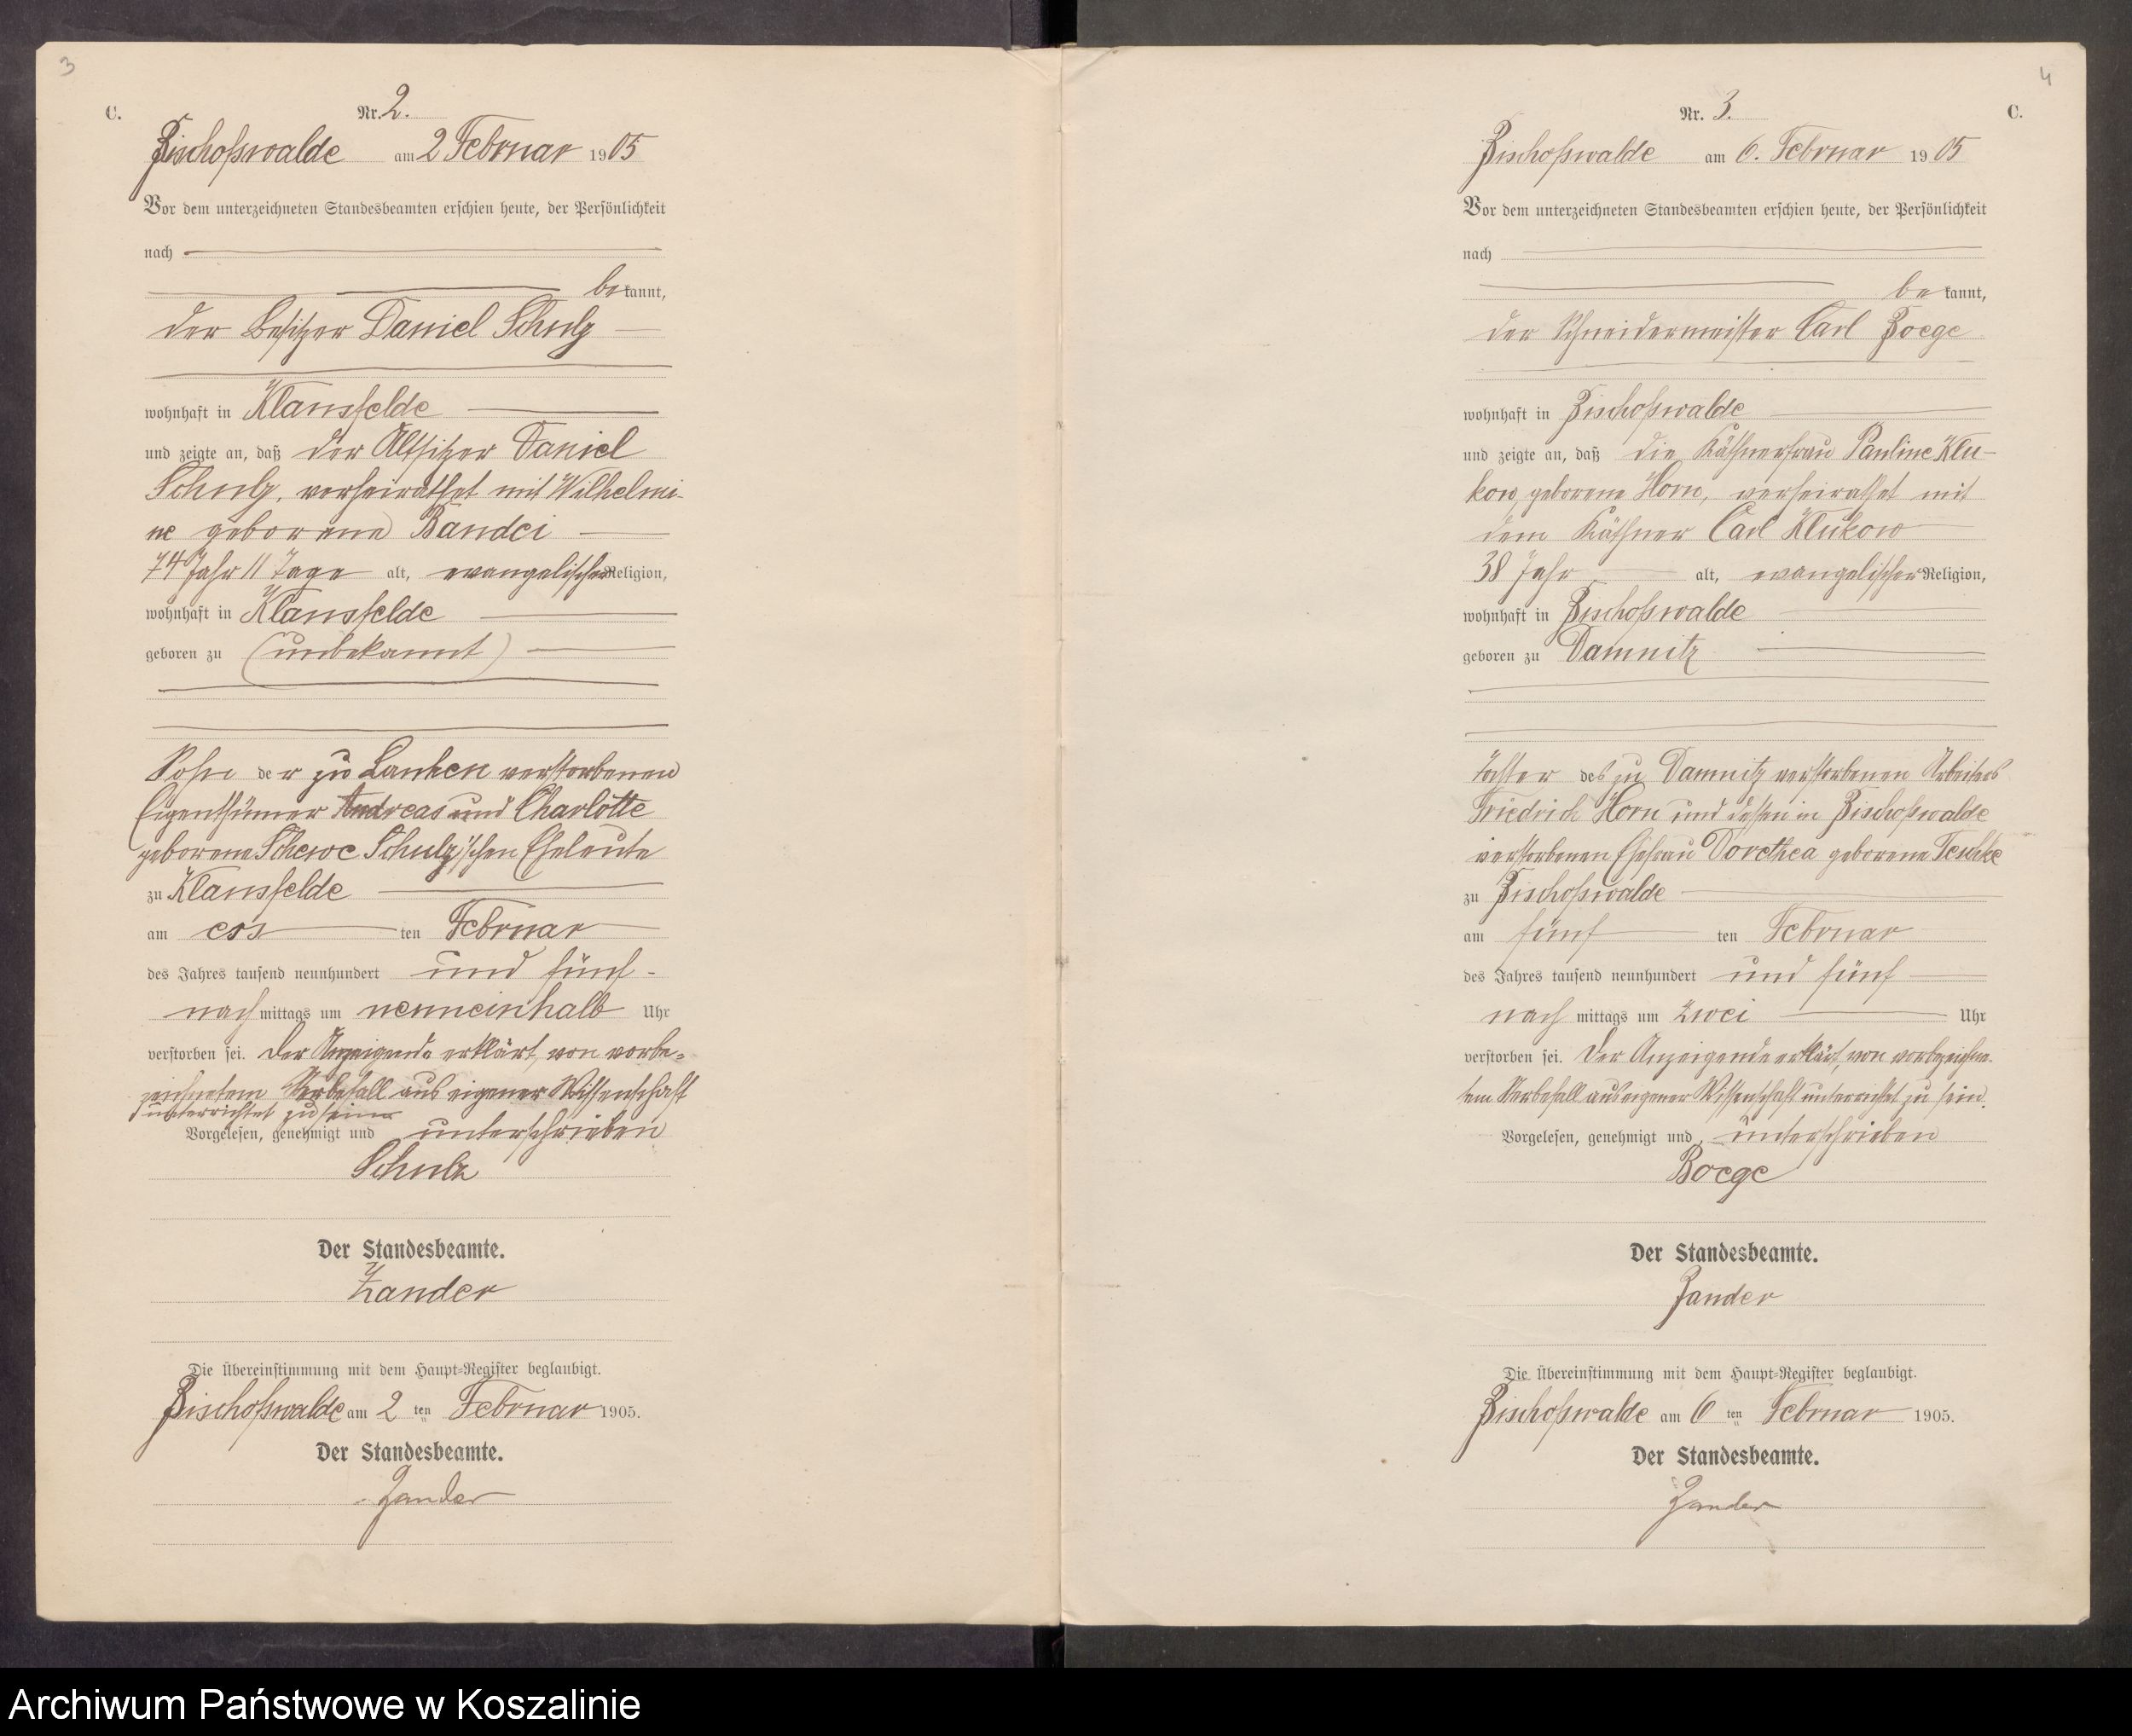 3
C.
Nr. 2.
Bischofswalde am 2 Februar 1905
Vor dem unterzeichneten Standesbeamten erschien heute, der Persönlichkeit
nach
bekannt,
der Besitzer Daniel Schulz
wohnhaft in Klausfelde
und zeigte an, daß der Altsitzer Daniel
Schulz, verheirathet mit Wilhelmi-
ne geborene Bandci
74 Jahr 11 Tage alt, evangelischer Religion,
wohnhaft in Klausfelde
geboren zu (unbekannt)
Sohn der zu Lanken verstorbenen
Eigenthümer Andreas und Charlotte
geborene Schewe Schulz'schen Eheleute
zu Klausfelde
am ersten Februar
des Jahres tausend neunhundert und fünf -
nachmittags um neuneinhalb Uhr
verstorben sei. Der Anzeigende erklärt, von vorbe=
zeichnetem Sterbefall aus eigener Wissenschaft
unterrichtet zu sein
Vorgelesen, genehmigt und unterschrieben
Schulz
Der Standesbeamte.
Zander
Die Übereinstimmung mit dem Haupt=Register beglaubigt.
Bischofswalde am 2 ten Februar 1905.
Der Standesbeamte.
Zander
4
Nr. 3.
C.
Bischofswalde am 6. Februar 1905
Vor dem unterzeichneten Standesbeamten erschien heute, der Persönlichkeit
nach
bekannt,
der Schneidermeister Carl Boege
wohnhaft in Bischofswalde
und zeigte an, daß die Käthnerfrau Pauline Klu-
kow, geborene Horn, verheirathet mit
dem Käthner Carl Klukow
38 Jahr alt, evangelischer Religion,
wohnhaft in Bischofswalde
geboren zu Damnitz
Tochter des zu Damnitz verstorbenen Arbeiters
Friedrich Horn und dessen in Bischofswalde
verstorbenen Ehefrau Dorethea geborene Teschke
zu Bischofswalde
am fünften Februar
des Jahres tausend neunhundert und fünf
nachmittags um zwei Uhr
verstorben sei. Der Anzeigende erklärt, von vorbezeichne-
tem Sterbefall aus eigener Wissenschaft unterrichtet zu sein.
Vorgelesen, genehmigt und unterschrieben
Boege
Der Standesbeamte.
Zander
Die Übereinstimmung mit dem Haupt=Register beglaubigt.
Bischofswalde am 6 ten Februar 1905.
Der Standesbeamte.
Zander
Archiwum Państwowe w Koszalinie